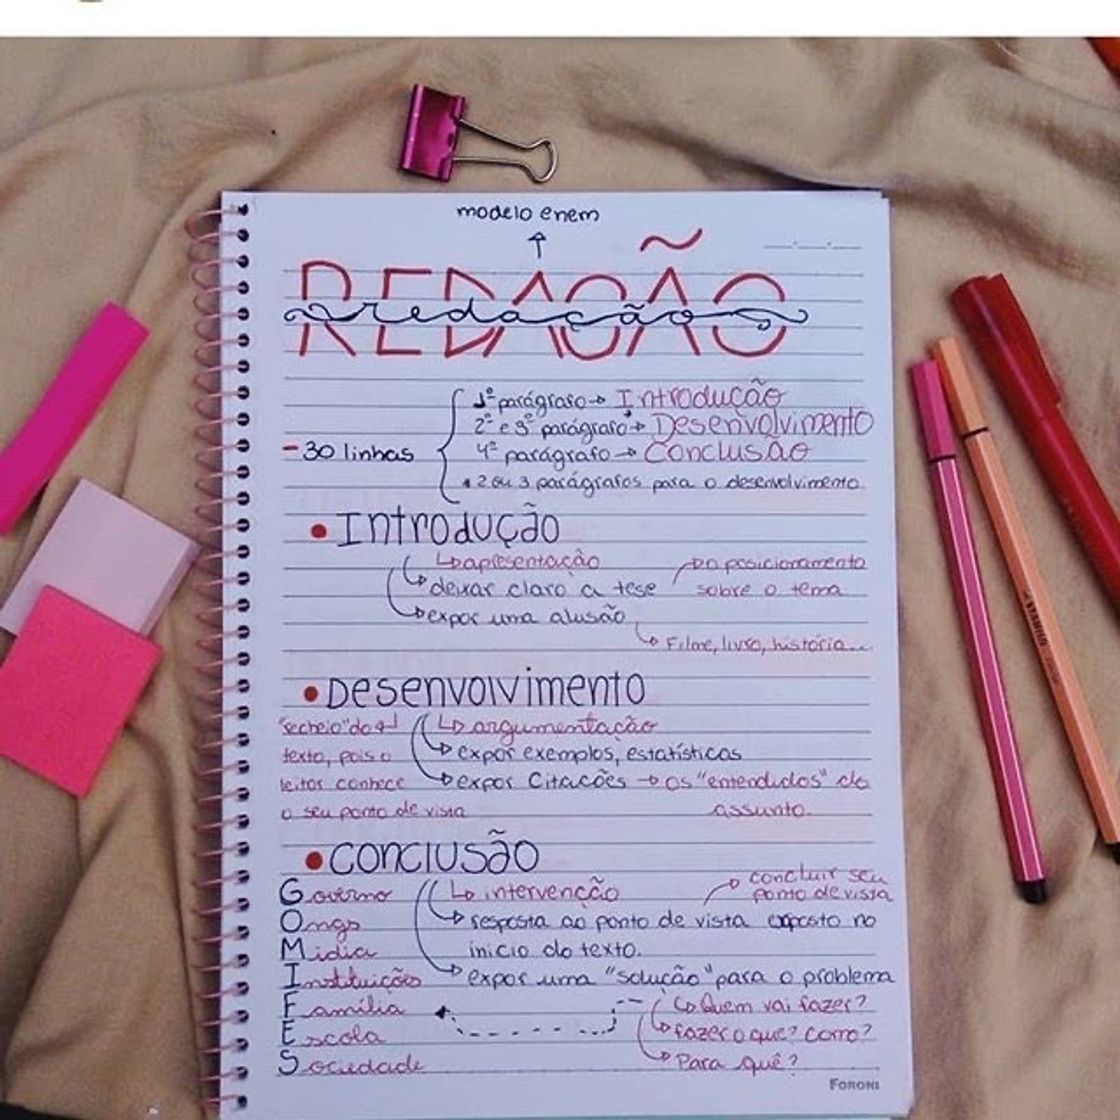 modelo enem
REDAÇÃO
redação
1º parágrafo → Introdução
2º e 3º parágrafo → Desenvolvimento
- 30 linhas
4º parágrafo → Conclusão
* 2 ou 3 parágrafos para o desenvolvimento
• Introdução
↳ apresentação
↳ deixar claro a tese → o posicionamento
sobre o tema
↳ expor uma alusão
↳ Filme, livro, história...
• Desenvolvimento
"recheio" do ↲ ↳ argumentação
texto, pois o ↳ expor exemplos, estatísticas
leitor conhece ↳ expor Citacões → os "entendidos" do
o seu ponto de vista assunto.
• Conclusão
Governo ↳ intervenção → concluir seu
ponto de vista
Ongs ↳ resposta ao ponto de vista exposto no
Midia inicio do texto.
Instituições ↳ expor uma "solução" para o problema
Família ↳ Quem vai fazer?
Escola ↳ fazer o que? Como?
Sociedade ↳ Para quê?
FORONI
STABILO